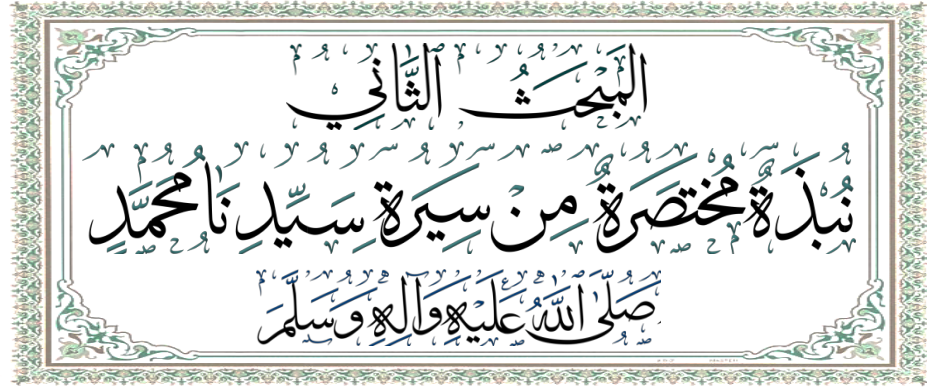 المَبْحَثُ الثَّانِي
نُبْذَةٌ مُخْتَصَرَةٌ مِنْ سِيرَةِ سَيِّدِنَا مُحَمَّدٍ
صَلَّى اللَّهُ عَلَيْهِ وَآلِهِ وَسَلَّمَ